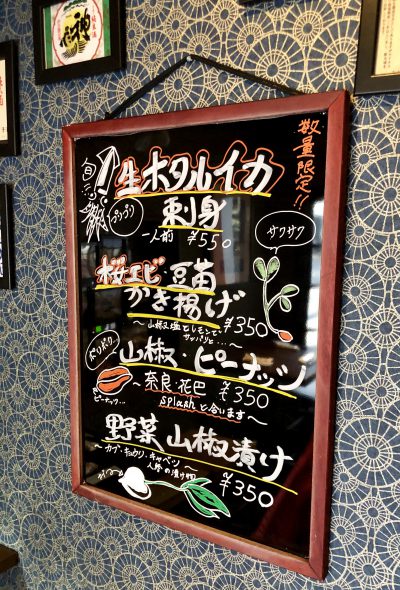 数量限定!!
旬
生ホタルイカ
刺身
プリプリ
一人前 ¥550
サクサク
桜エビ 豆苗
かき揚げ
～山椒塩とレモンで
サッパリと…～
¥350
ポリポリ
山椒・ピーナッツ
ピーナッツ…
～奈良・花巴
¥350
splashと合います～
野菜 山椒漬け
～カブ・キュウリ・キャベツ～
¥350